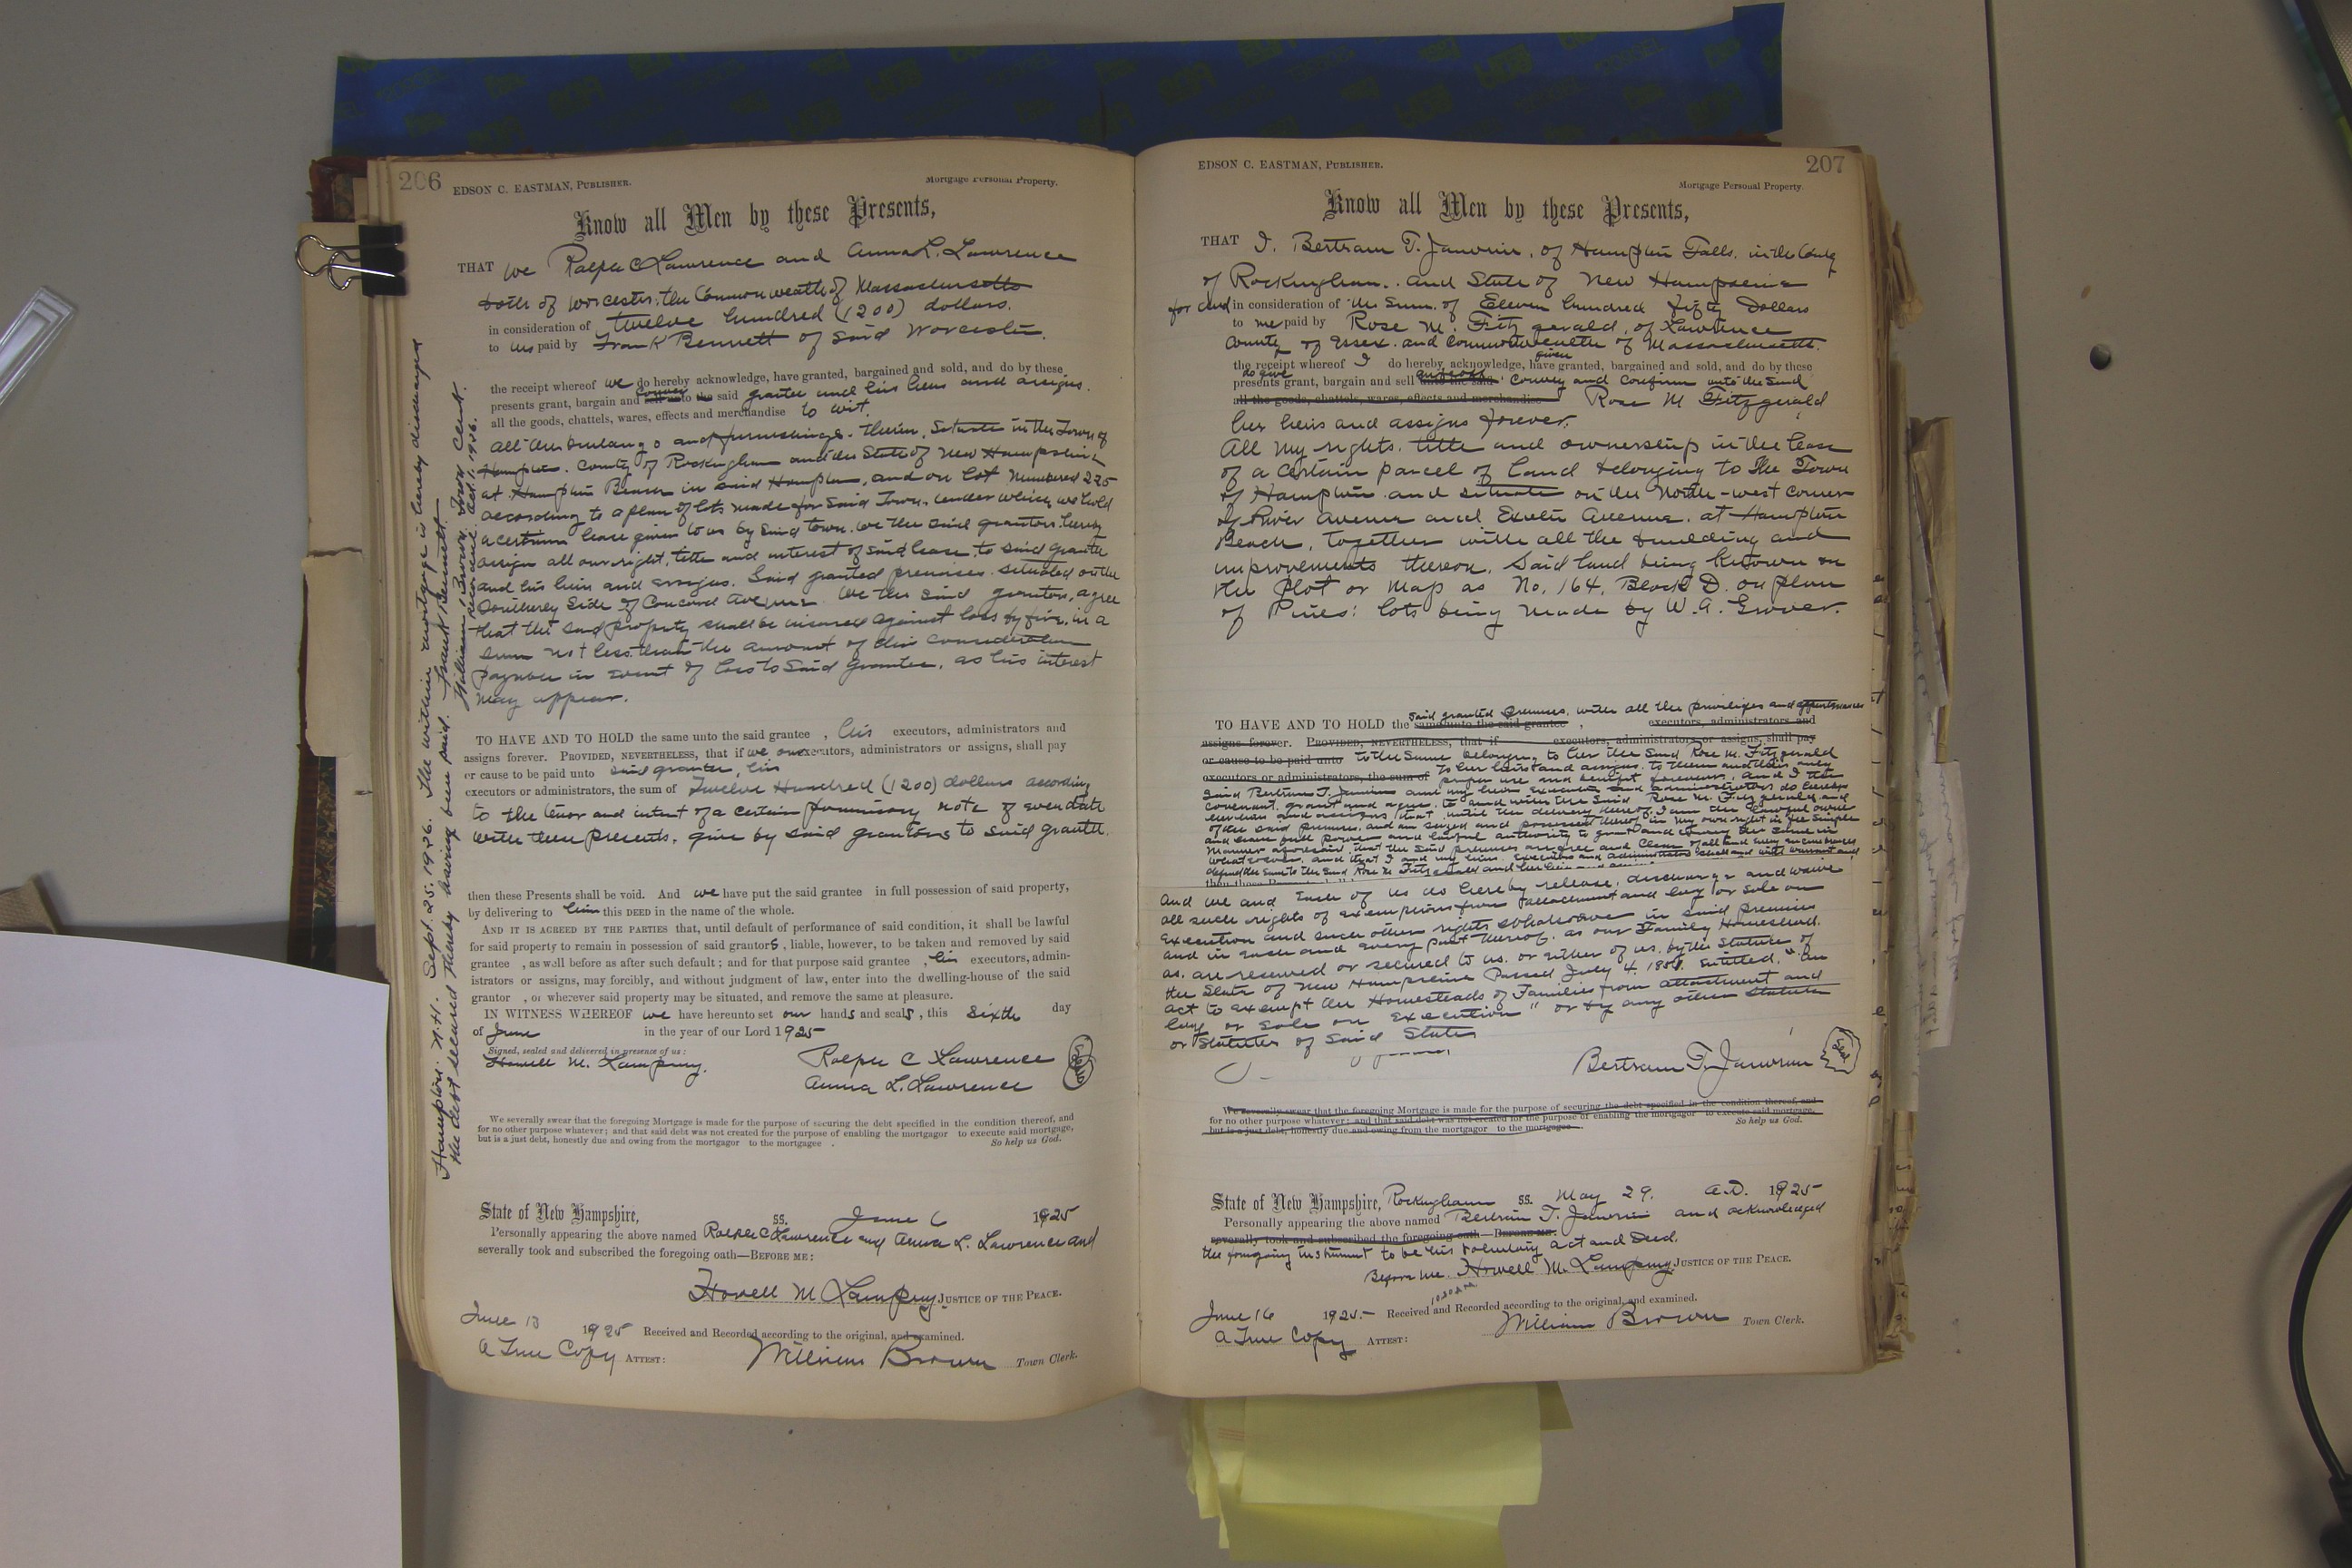 206
EDSON C. EASTMAN, PUBLISHER.
Mortgage Personal Property.
Know all Men by these Presents,
THAT we Ralph C Lawrence and Anna L. Lawrence
both of Worcester, the Commonwealth of Massachusetts
in consideration of twelve hundred (1200) dollars.
to us paid by Frank Bennett of said Worcester.
the receipt whereof we do hereby acknowledge, have granted, bargained and sold, and do by these
presents grant, bargain and sell unto the said grantee and his heirs and assigns.
all the goods, chattels, wares, effects and merchandise to wit.
All the buildings and furnishings therein, situate in the Town of
Hampton. County of Rockingham and the State of New Hampshire
at Hampton Beach in said Hampton, and on lot numbered 225
according to a plan of lots made for said Town. under which we hold
a certain lease given to us by said town. We the said grantors hereby
assign all our right, title and interest of said lease to said grantee
and his heirs and assigns. Said granted premises situated on the
Southerly side of Concord Avenue We the said grantors, agree
that the said property shall be insured against loss by fire, in a
sum not less than the amount of this consideration
payable in event of loss to said grantee, as his interest
may appear.
TO HAVE AND TO HOLD the same unto the said grantee , his executors, administrators and
assigns forever. PROVIDED, NEVERTHELESS, that if we our executors, administrators or assigns, shall pay
or cause to be paid unto said grantee, his
executors or administrators, the sum of Twelve Hundred (1200) dollars according
to the tenor and intent of a certain promissory note of even date
with these presents. give by said grantors to said grantee.
then these Presents shall be void. And we have put the said grantee in full possession of said property,
by delivering to him this DEED in the name of the whole.
AND IT IS AGREED BY THE PARTIES that, until default of performance of said condition, it shall be lawful
for said property to remain in possession of said grantors, liable, however, to be taken and removed by said
grantee , as well before as after such default; and for that purpose said grantee , his executors, admin-
istrators or assigns, may forcibly, and without judgment of law, enter into the dwelling-house of the said
grantor , or wherever said property may be situated, and remove the same at pleasure.
IN WITNESS WHEREOF we have hereunto set our hands and seals, this sixth day
of June in the year of our Lord 1925
Signed, sealed and delivered in presence of us:
Howell M. Lamprey.
Ralph C Lawrence
Anna L. Lawrence
Seals
We severally swear that the foregoing Mortgage is made for the purpose of securing the debt specified in the condition thereof, and
for no other purpose whatever; and that said debt was not created for the purpose of enabling the mortgagor to execute said mortgage,
but is a just debt, honestly due and owing from the mortgagor to the mortgagee .
So help us God.
State of New Hampshire, ss. June 6 1925
Personally appearing the above named Ralph C Lawrence and Anna L. Lawrence and
severally took and subscribed the foregoing oath—BEFORE ME:
Howell M Lamprey. JUSTICE OF THE PEACE.
June 13 1925 Received and Recorded according to the original, and examined.
A True Copy ATTEST: William Brown Town Clerk.
Hampton. N.H. Sept. 25. 1926. The within mortgage is hereby discharged
the debt secured thereby having been paid. Frank Bennett
William Brown. Town Clerk.
Recorded Oct. 1. 1926.
207
EDSON C. EASTMAN, PUBLISHER.
Mortgage Personal Property.
Know all Men by these Presents,
THAT I. Bertram T. Janvrin, of Hampton Falls. in the County
of Rockingham. and State of New Hampshire
for and in consideration of the sum of Eleven hundred fifty Dollars
to me paid by Rose M. Fitzgerald, of Lawrence
County of Essex. and Commonwealth of Massachusetts.
the receipt whereof I do hereby acknowledge, have given granted, bargained and sold, and do by these
presents do give grant, bargain and sell unto the said convey and confirm unto the said
all the goods, chattels, wares, effects and merchandise Rose M Fitzgerald
her heirs and assigns forever.
All my rights. title and ownership in the lease
of a certain parcel of land belonging to The Town
of Hampton and situate on the North-west corner
of River Avenue and Exeter Avenue. at Hampton
Beach, together with all the building and
improvements thereon. Said land being known on
the Plot or Map as No. 164, Block D. on plan
of Pines: lots being made by W. A. Grover.
TO HAVE AND TO HOLD the said granted premises, with all the privileges and appurtenances
same unto the said grantee , executors, administrators and
assigns forever. PROVIDED, NEVERTHELESS, that if executors, administrators or assigns, shall pay
or cause to be paid unto to the same belonging to her the said Rose M. Fitzgerald
executors or administrators, the sum of to her heirs and assigns. to them and their only
proper use and benefit forever. And I the
said Bertram T. Janvrin and my heirs executors and administrators do hereby
covenant, grant and agree. to and with the said Rose M. Fitzgerald and
her heirs and assigns that until the delivery hereof I am the lawful owner
of the said premises, and am seized and possessed thereof in my own right in fee simple
and have full power and lawful authority to grant and convey the same in
manner aforesaid, that the said premises are free and clear of all and every incumbrance
whatsoever, and that I and my heirs. executors and administrators shall and will warrant and
defend the same to the said Rose M Fitzgerald and her heirs and assigns
And we and each of us do hereby release, discharge and waive
all such rights of exemptions from attachment and levy or sale on
execution and such other rights whatsoever in said premises
and in each and every part thereof. as our Family Homestead.
as. are reserved or secured to us. or either of us. by the Statute of
the State of New Hampshire Passed July 4. 1851. entitled. "An
act to exempt the Homesteads of Families from attachment and
levy or sale on execution" or by any other statute
or statutes of said State
Bertram T. Janvrin
Seal
We severally swear that the foregoing Mortgage is made for the purpose of securing the debt specified in the condition thereof, and
for no other purpose whatever; and that said debt was not created for the purpose of enabling the mortgagor to execute said mortgage,
but is a just debt, honestly due and owing from the mortgagor to the mortgagee .
So help us God.
State of New Hampshire, Rockingham ss. May 29. A.D. 1925
Personally appearing the above named Bertram T. Janvrin and acknowledged
severally took and subscribed the foregoing oath—BEFORE ME:
the foregoing instrument to be his voluntary act and Deed.
Before me. Howell M. Lamprey. JUSTICE OF THE PEACE.
June 16 1925- Received and Recorded according to the original, and examined.
A True Copy ATTEST: William Brown Town Clerk.